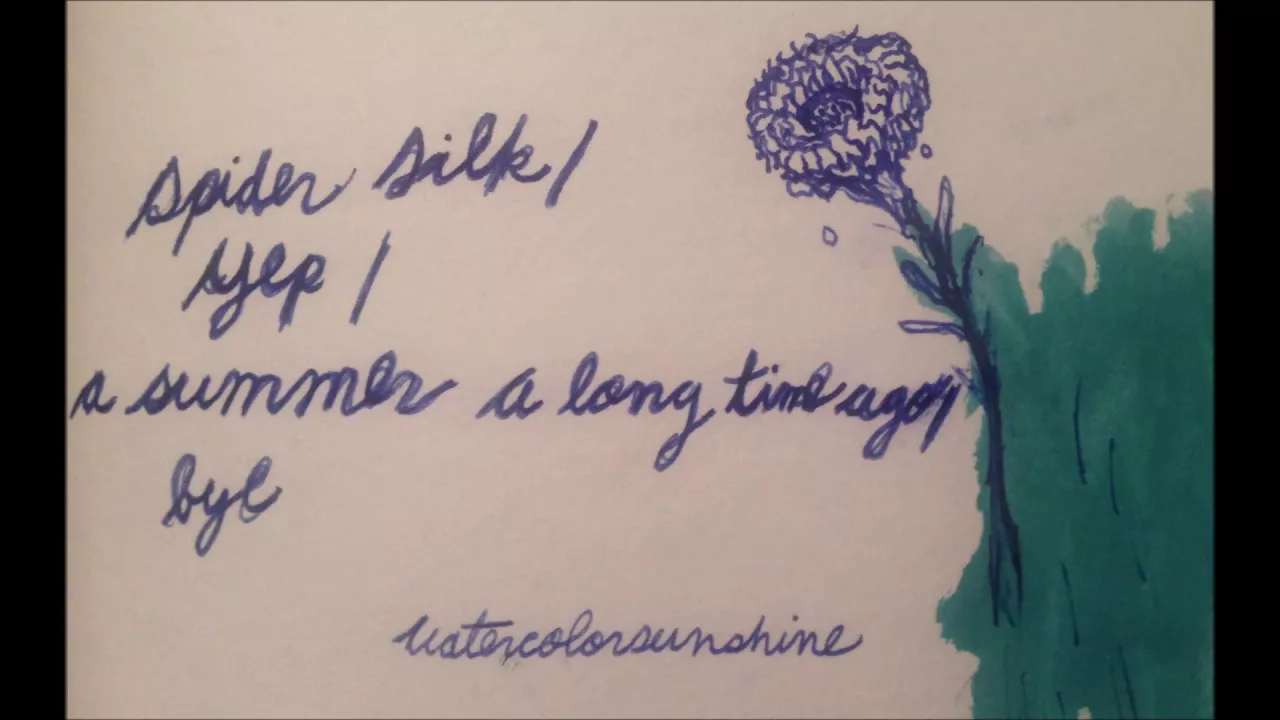 spider silk/
yep/
a summer a long time ago/
bye
watercolorsunshine